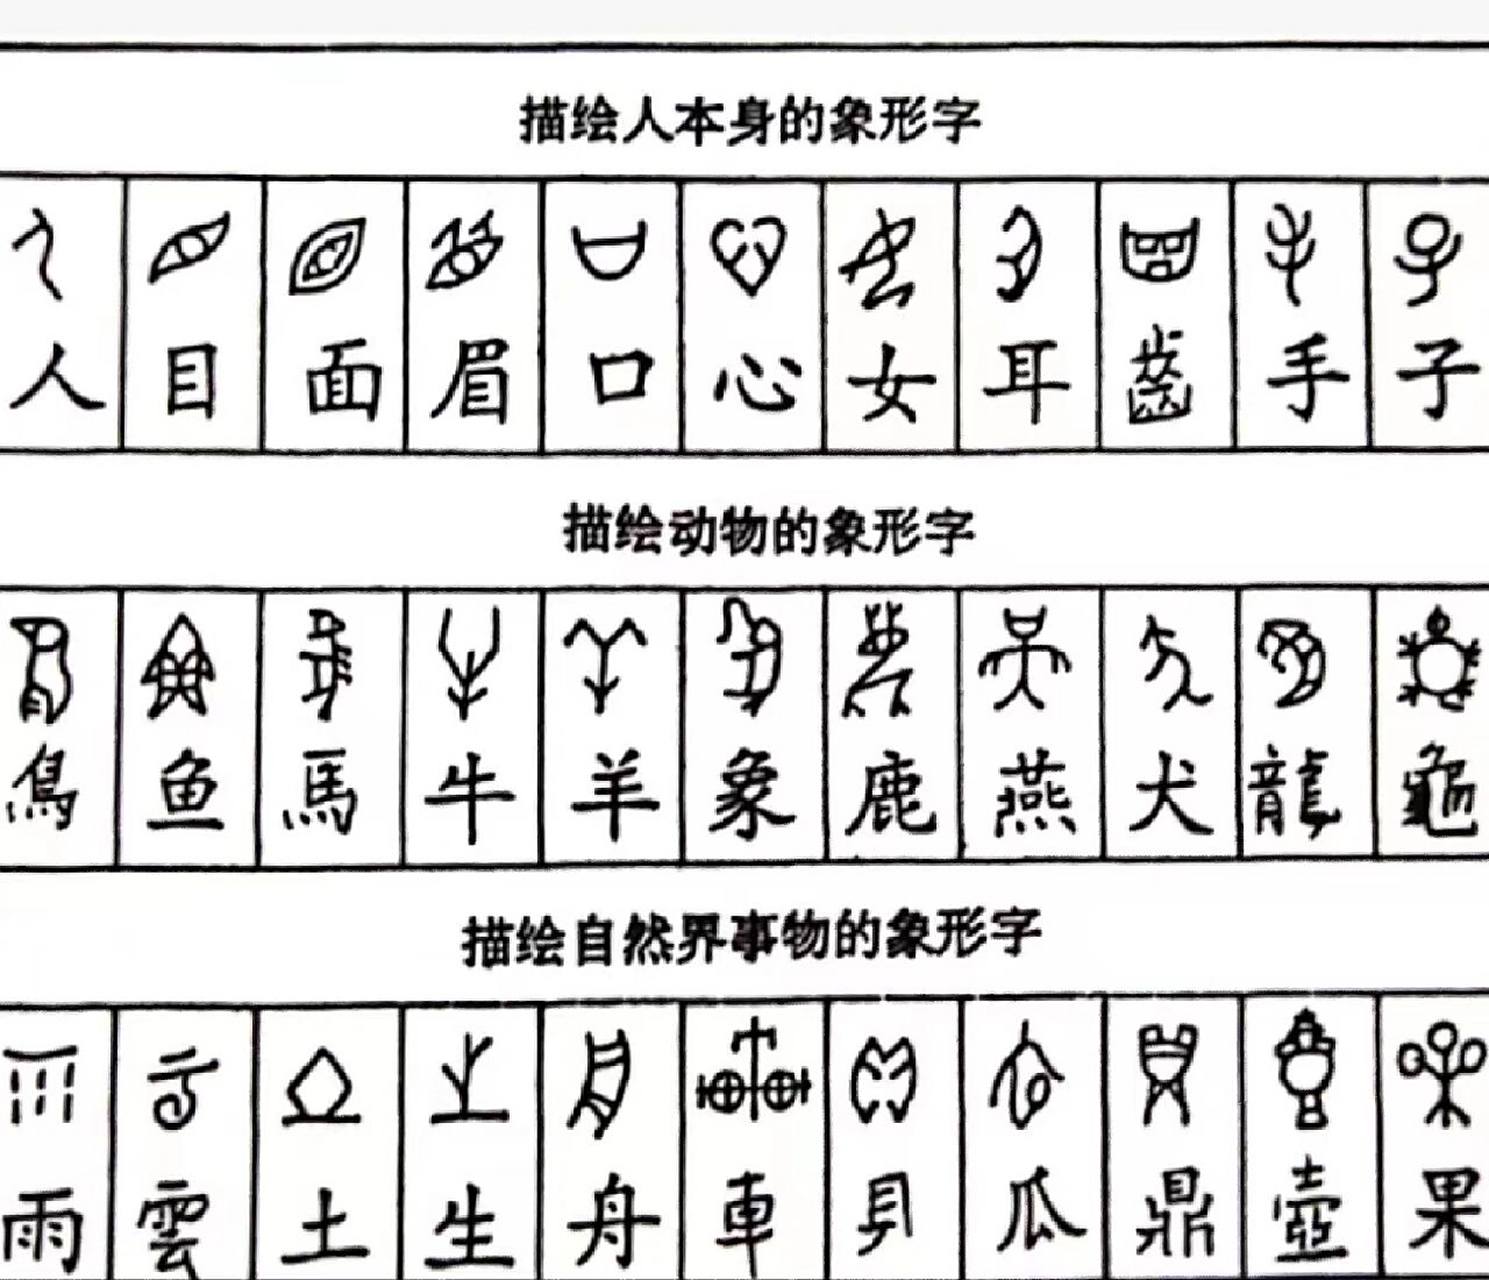 描绘人本身的象形字
人 目 面 眉 口 心 女 耳 齒 手 子
描绘动物的象形字
鳥 鱼 馬 牛 羊 象 鹿 燕 犬 龍 龜
描绘自然界事物的象形字
雨 雲 土 生 舟 車 貝 瓜 鼎 壺 果